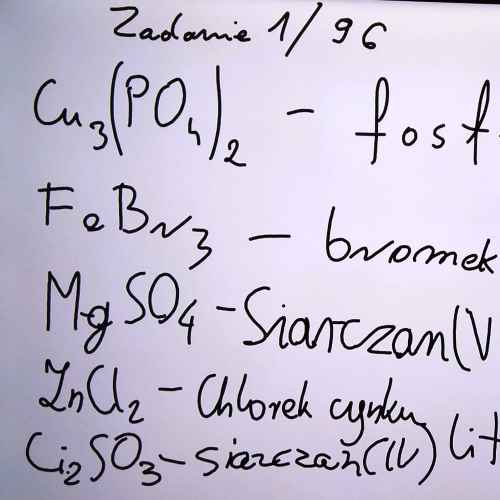 Zadanie 1/96
Cu3(PO4)2 - fosf
FeBr3 - bromek
MgSO4 - Siarczan(V
ZnCl2 - Chlorek cynku
Ci2SO3 - siarczan(IV) lit